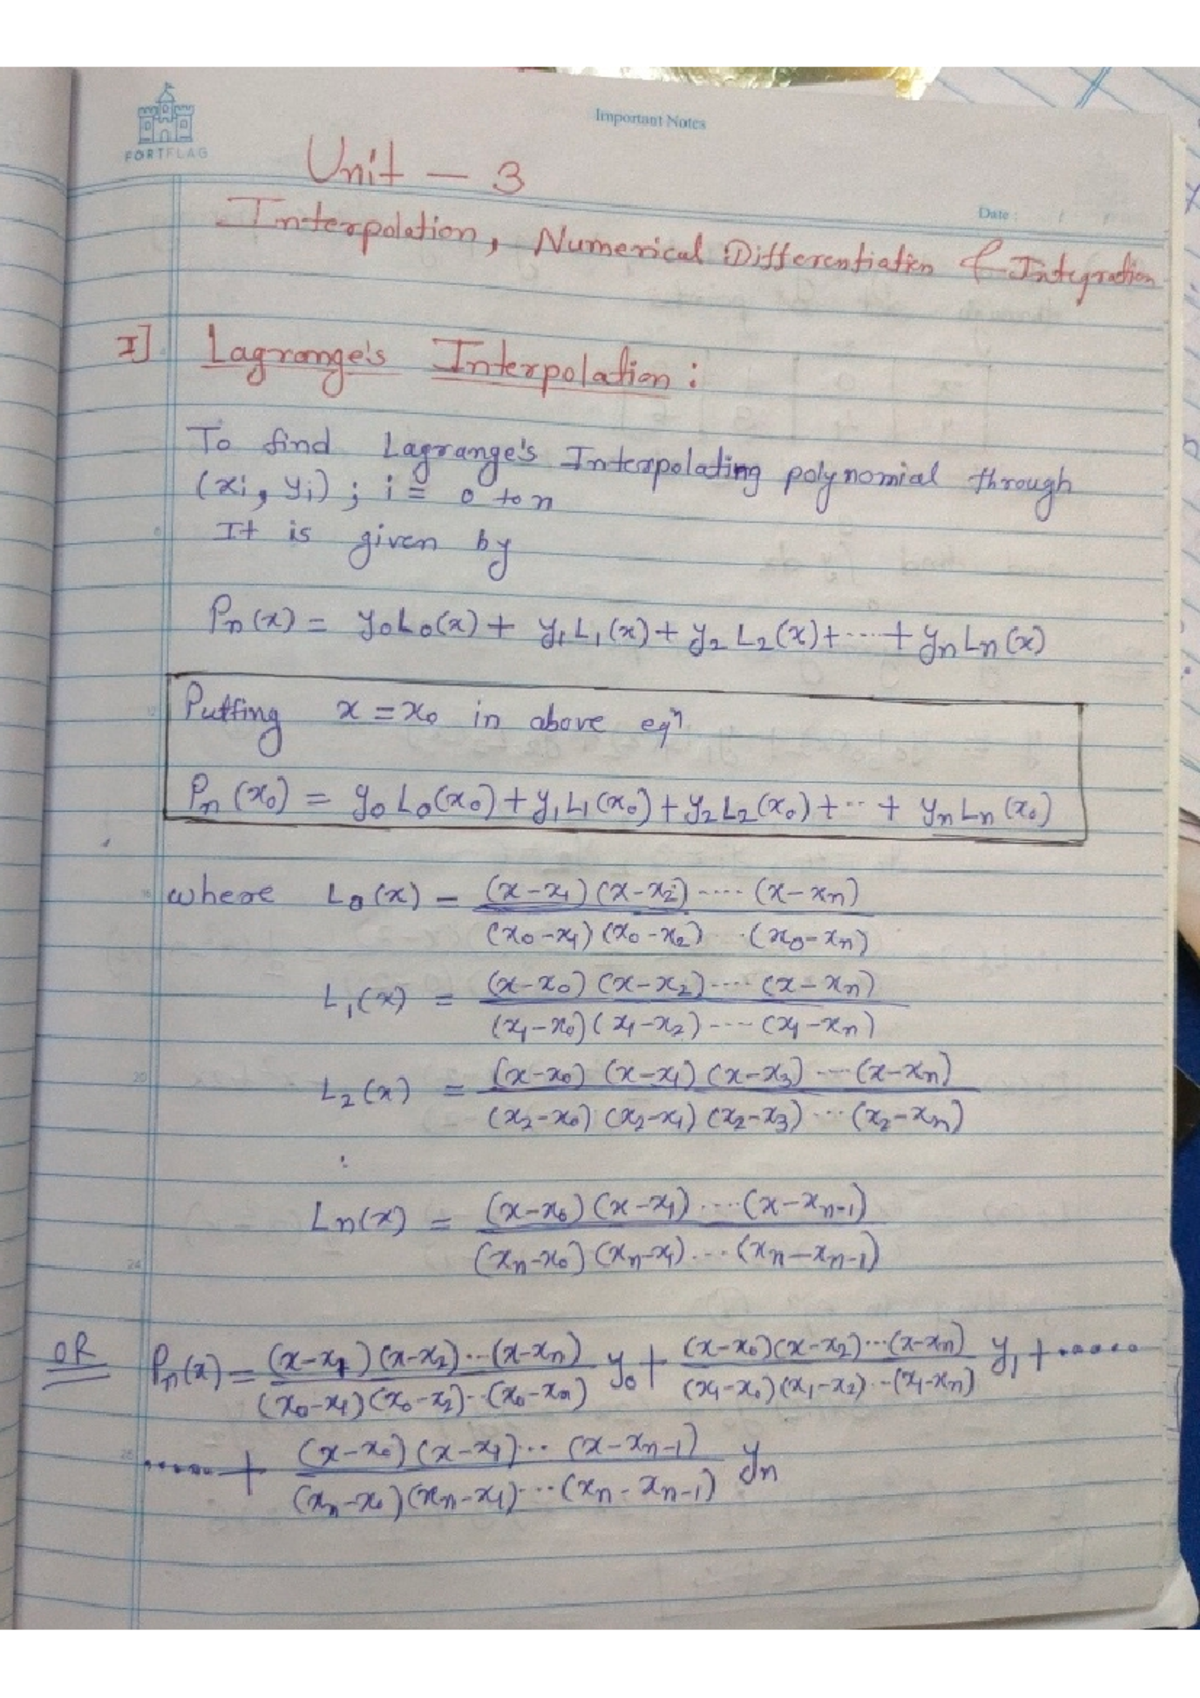 FORTFLAG
Important Notes
Unit - 3
Date :
Interpolation, Numerical Differentiation & Integration
I] Lagrange's Interpolation :
To find Lagrange's Interpolating polynomial through
(xi, yi) ; i = 0 to n
It is given by
Pn(x) = y0L0(x) + y1L1(x) + y2L2(x) + .... + ynLn(x)
Putting x = x0 in above eqn
Pn(x0) = y0L0(x0) + y1L1(x0) + y2L2(x0) + ... + ynLn(x0)
where L0(x) = (x-x1)(x-x2).....(x-xn)
(x0-x1)(x0-x2) .(x0-xn)
L1(x) = (x-x0)(x-x2).....(x-xn)
(x1-x0)(x1-x2)----(x1-xn)
L2(x) = (x-x0)(x-x1)(x-x3)----(x-xn)
(x2-x0)(x2-x1)(x2-x3)...(x2-xn)
:
Ln(x) = (x-x0)(x-x1)....(x-xn-1)
(xn-x0)(xn-x1)...(xn-xn-1)
OR Pn(x) = (x-x1)(x-x2)...(x-xn) y0 + (x-x0)(x-x2)...(x-xn) y1 + ......
(x0-x1)(x0-x2)...(x0-xn) (x1-x0)(x1-x2)...(x1-xn)
...... + (x-x0)(x-x1)...(x-xn-1) yn
(xn-x0)(xn-x1)...(xn-xn-1)